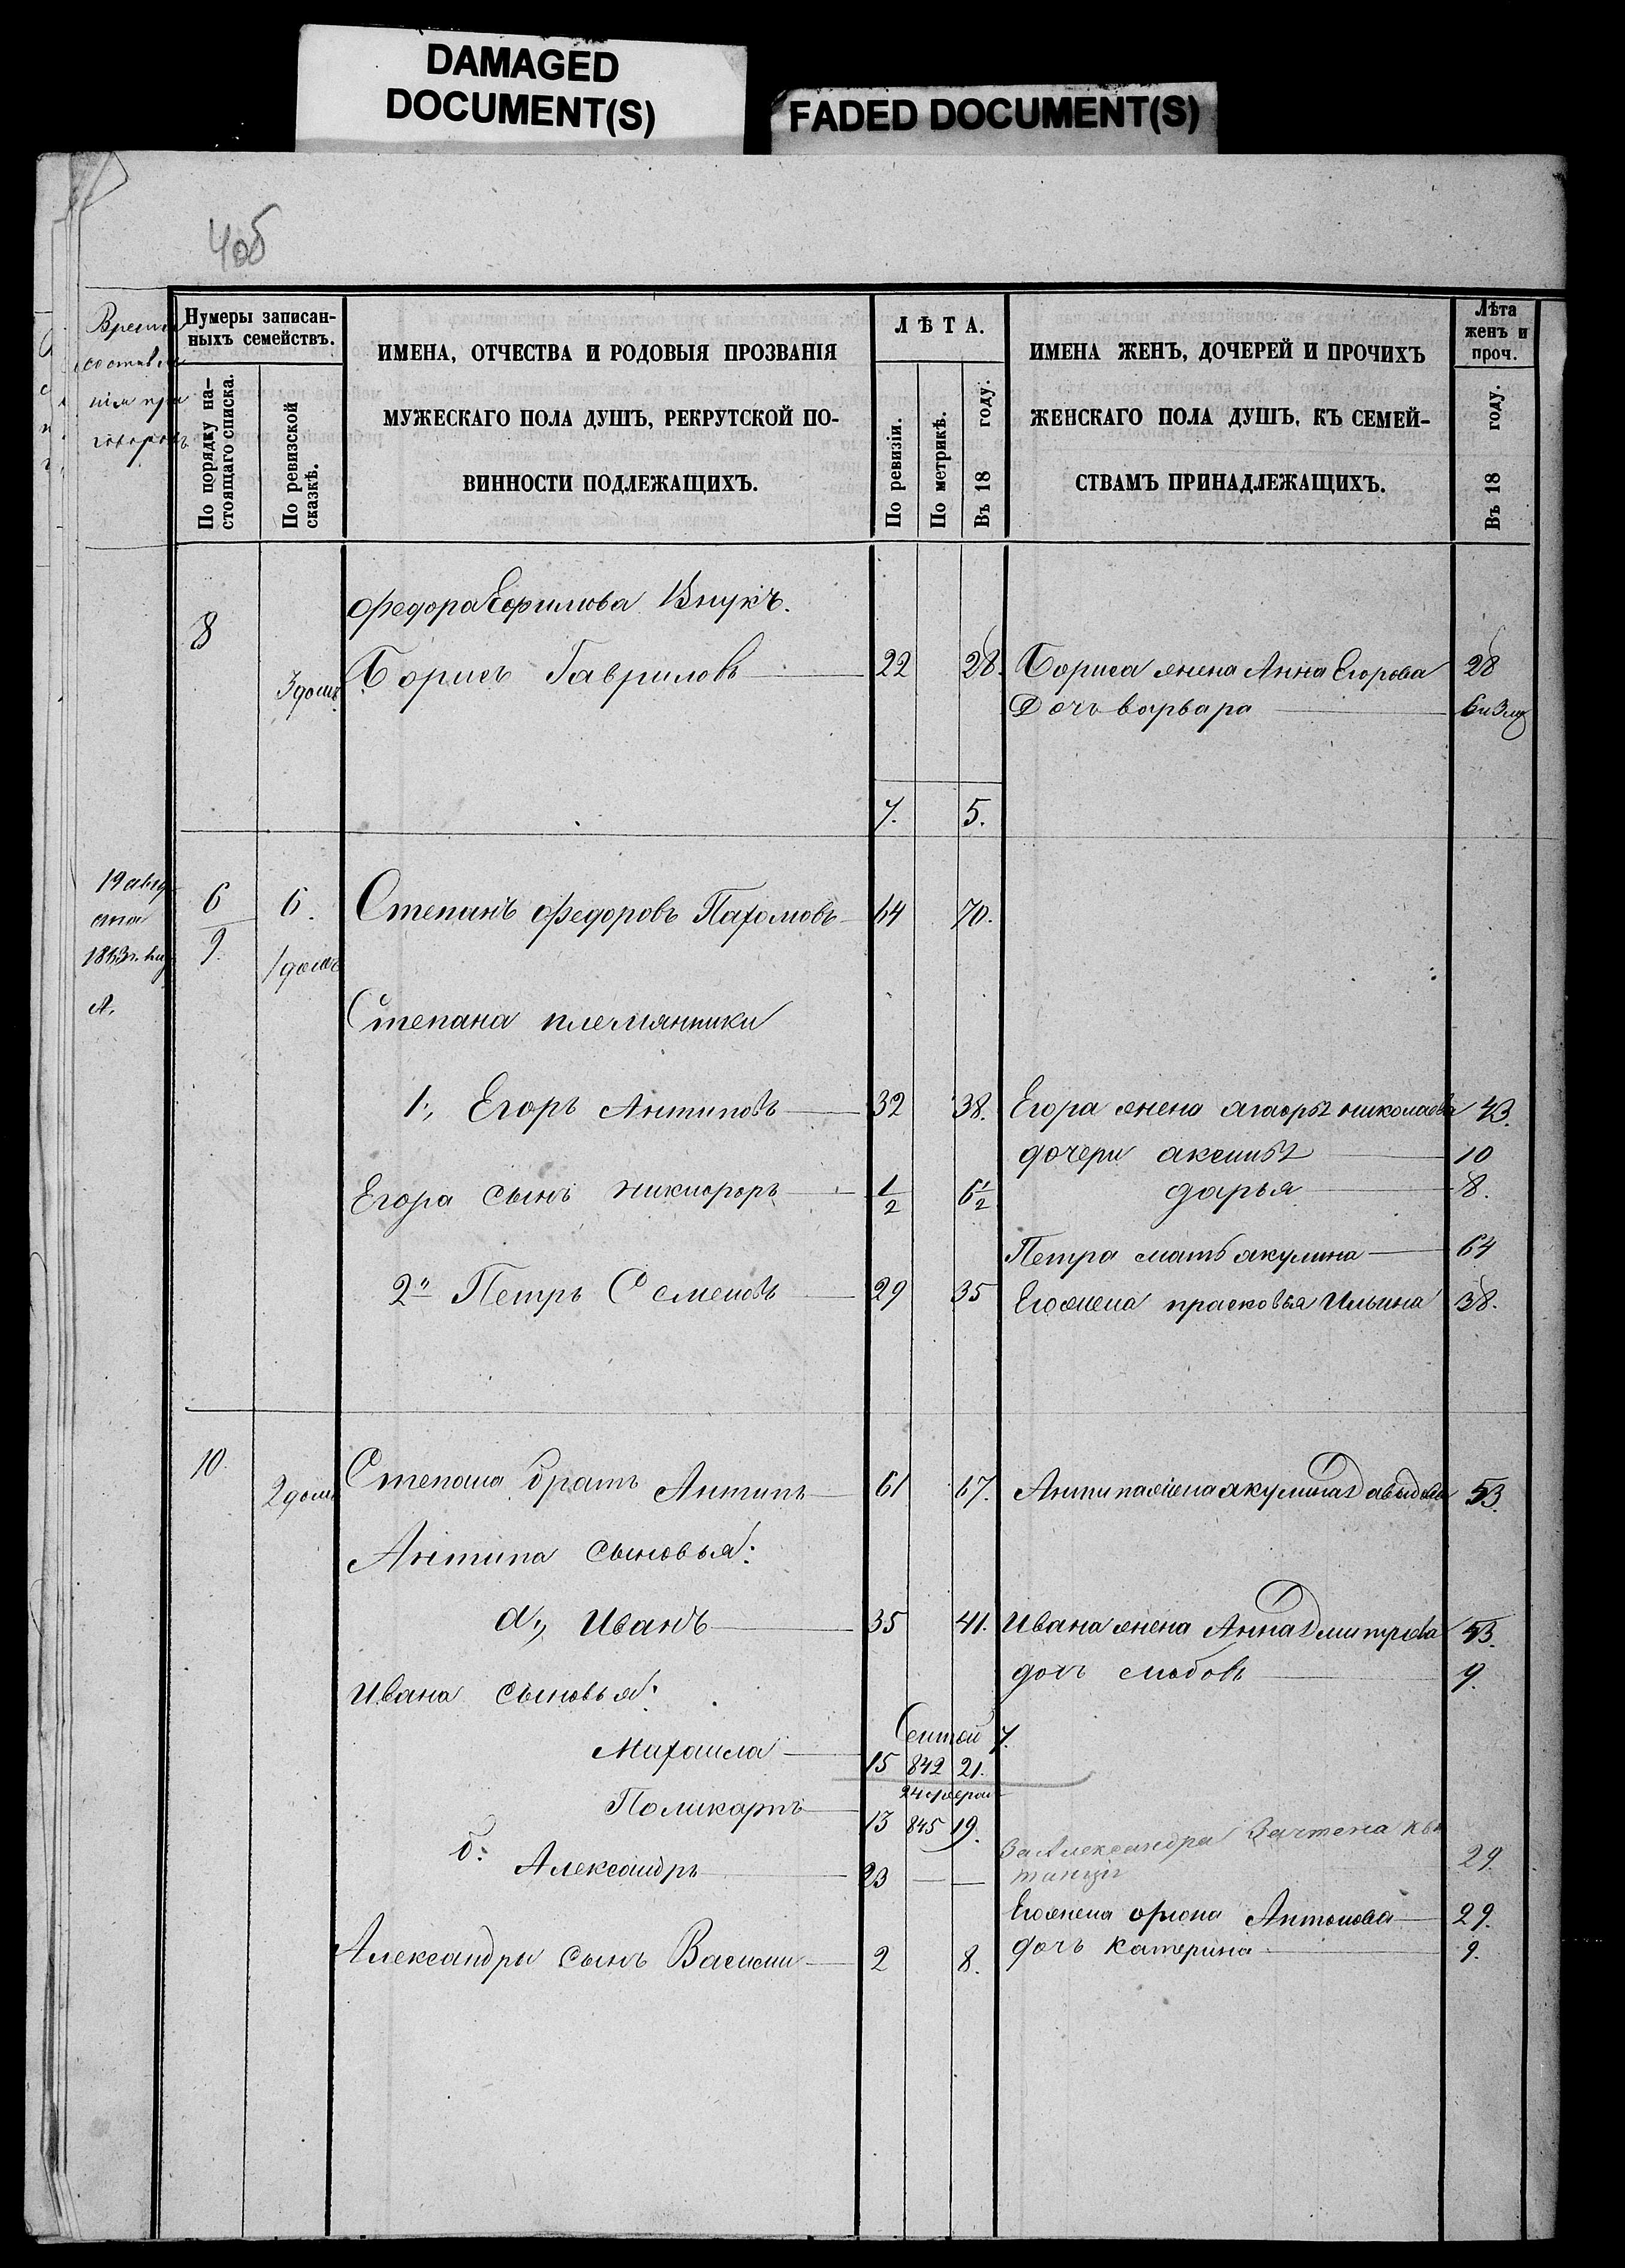 DAMAGED
DOCUMENT(S)
FADED DOCUMENT(S)
4об
Время
составле
нія при
говоровъ
Нумеры записан-
ныхъ семействъ.
По порядку на-
стоящаго списка.
По ревизской
сказкѣ.
ИМЕНА, ОТЧЕСТВА И РОДОВЫЯ ПРОЗВАНІЯ
МУЖЕСКАГО ПОЛА ДУШЪ, РЕКРУТСКОЙ ПО-
ВИННОСТИ ПОДЛЕЖАЩИХЪ.
ЛѢТА.
По ревизіи.
По метрикѣ.
Въ 18 году.
ИМЕНА ЖЕНЪ, ДОЧЕРЕЙ И ПРОЧИХЪ
ЖЕНСКАГО ПОЛА ДУШЪ, КЪ СЕМЕЙ-
СТВАМЪ ПРИНАДЛЕЖАЩИХЪ.
Лѣта
женъ и
проч.
Въ 18 году.
8 Федора Ефимова Внукъ.
3 домъ Борисъ Гавриловъ 22 28. Бориса жена Анна Егорова 28
Дочь варвара 6 и 3 м
7. 5.
19 авгу
ста
6 6. Степанъ Федоровъ Пахомовъ 64 70.
9. 1 домъ
Степана племянники
1., Егоръ Антиповъ 32 38. Егора жена агафья николаева 43.
дочери аксинья 10
Егора сынъ никифоръ 1/2 6 1/2 дарья 8.
Петра мать акулина 64
2й Петръ Семеновъ 29 35 Его жена прасковья Ильина 38.
10. 2 домъ Степана братъ Антипъ 61 67. Антипа жена акулина Давыдова 53.
Антипа сыновья:
а., Иванъ 35 41. Ивана жена Анна Дмитрева 43.
дочь любовь 9.
Ивана сыновья:
Сентяб 7.
Михаила 15 842 21.
24 феврал
Поликарпъ 13 845 19.
За Александра Зачтена кви
танція 29.
б: Александръ 23 — —
Его жена фіона Антонова 29.
Александры сынъ Василій 2 8. дочь Катерина 9.